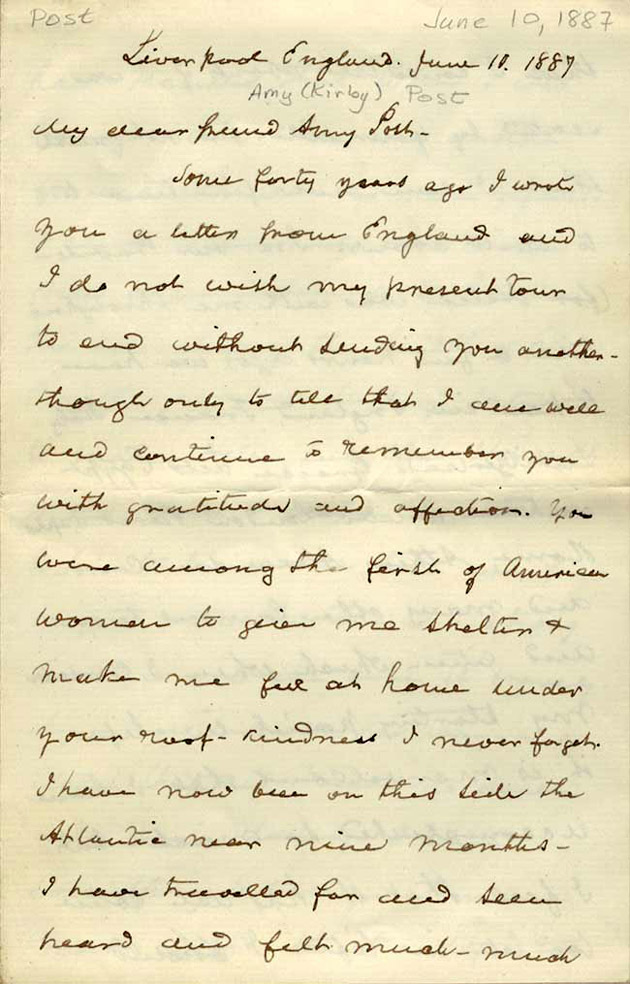 Post
June 10, 1887
Liverpool England. June 10. 1887
Amy (Kirby) Post
My dear friend Amy Post-
Some forty years ago I wrote
you a letter from England and
I do not wish my present tour
to end without sending you another-
though only to tell that I am well
and continue to remember you
with gratitude and affection. You
were among the first of American
women to give me shelter &
make me feel at home under
your roof- kindness I never forget.
I have now been on this side the
Atlantic near nine months-
I have travelled far and seen
heard and felt much- much